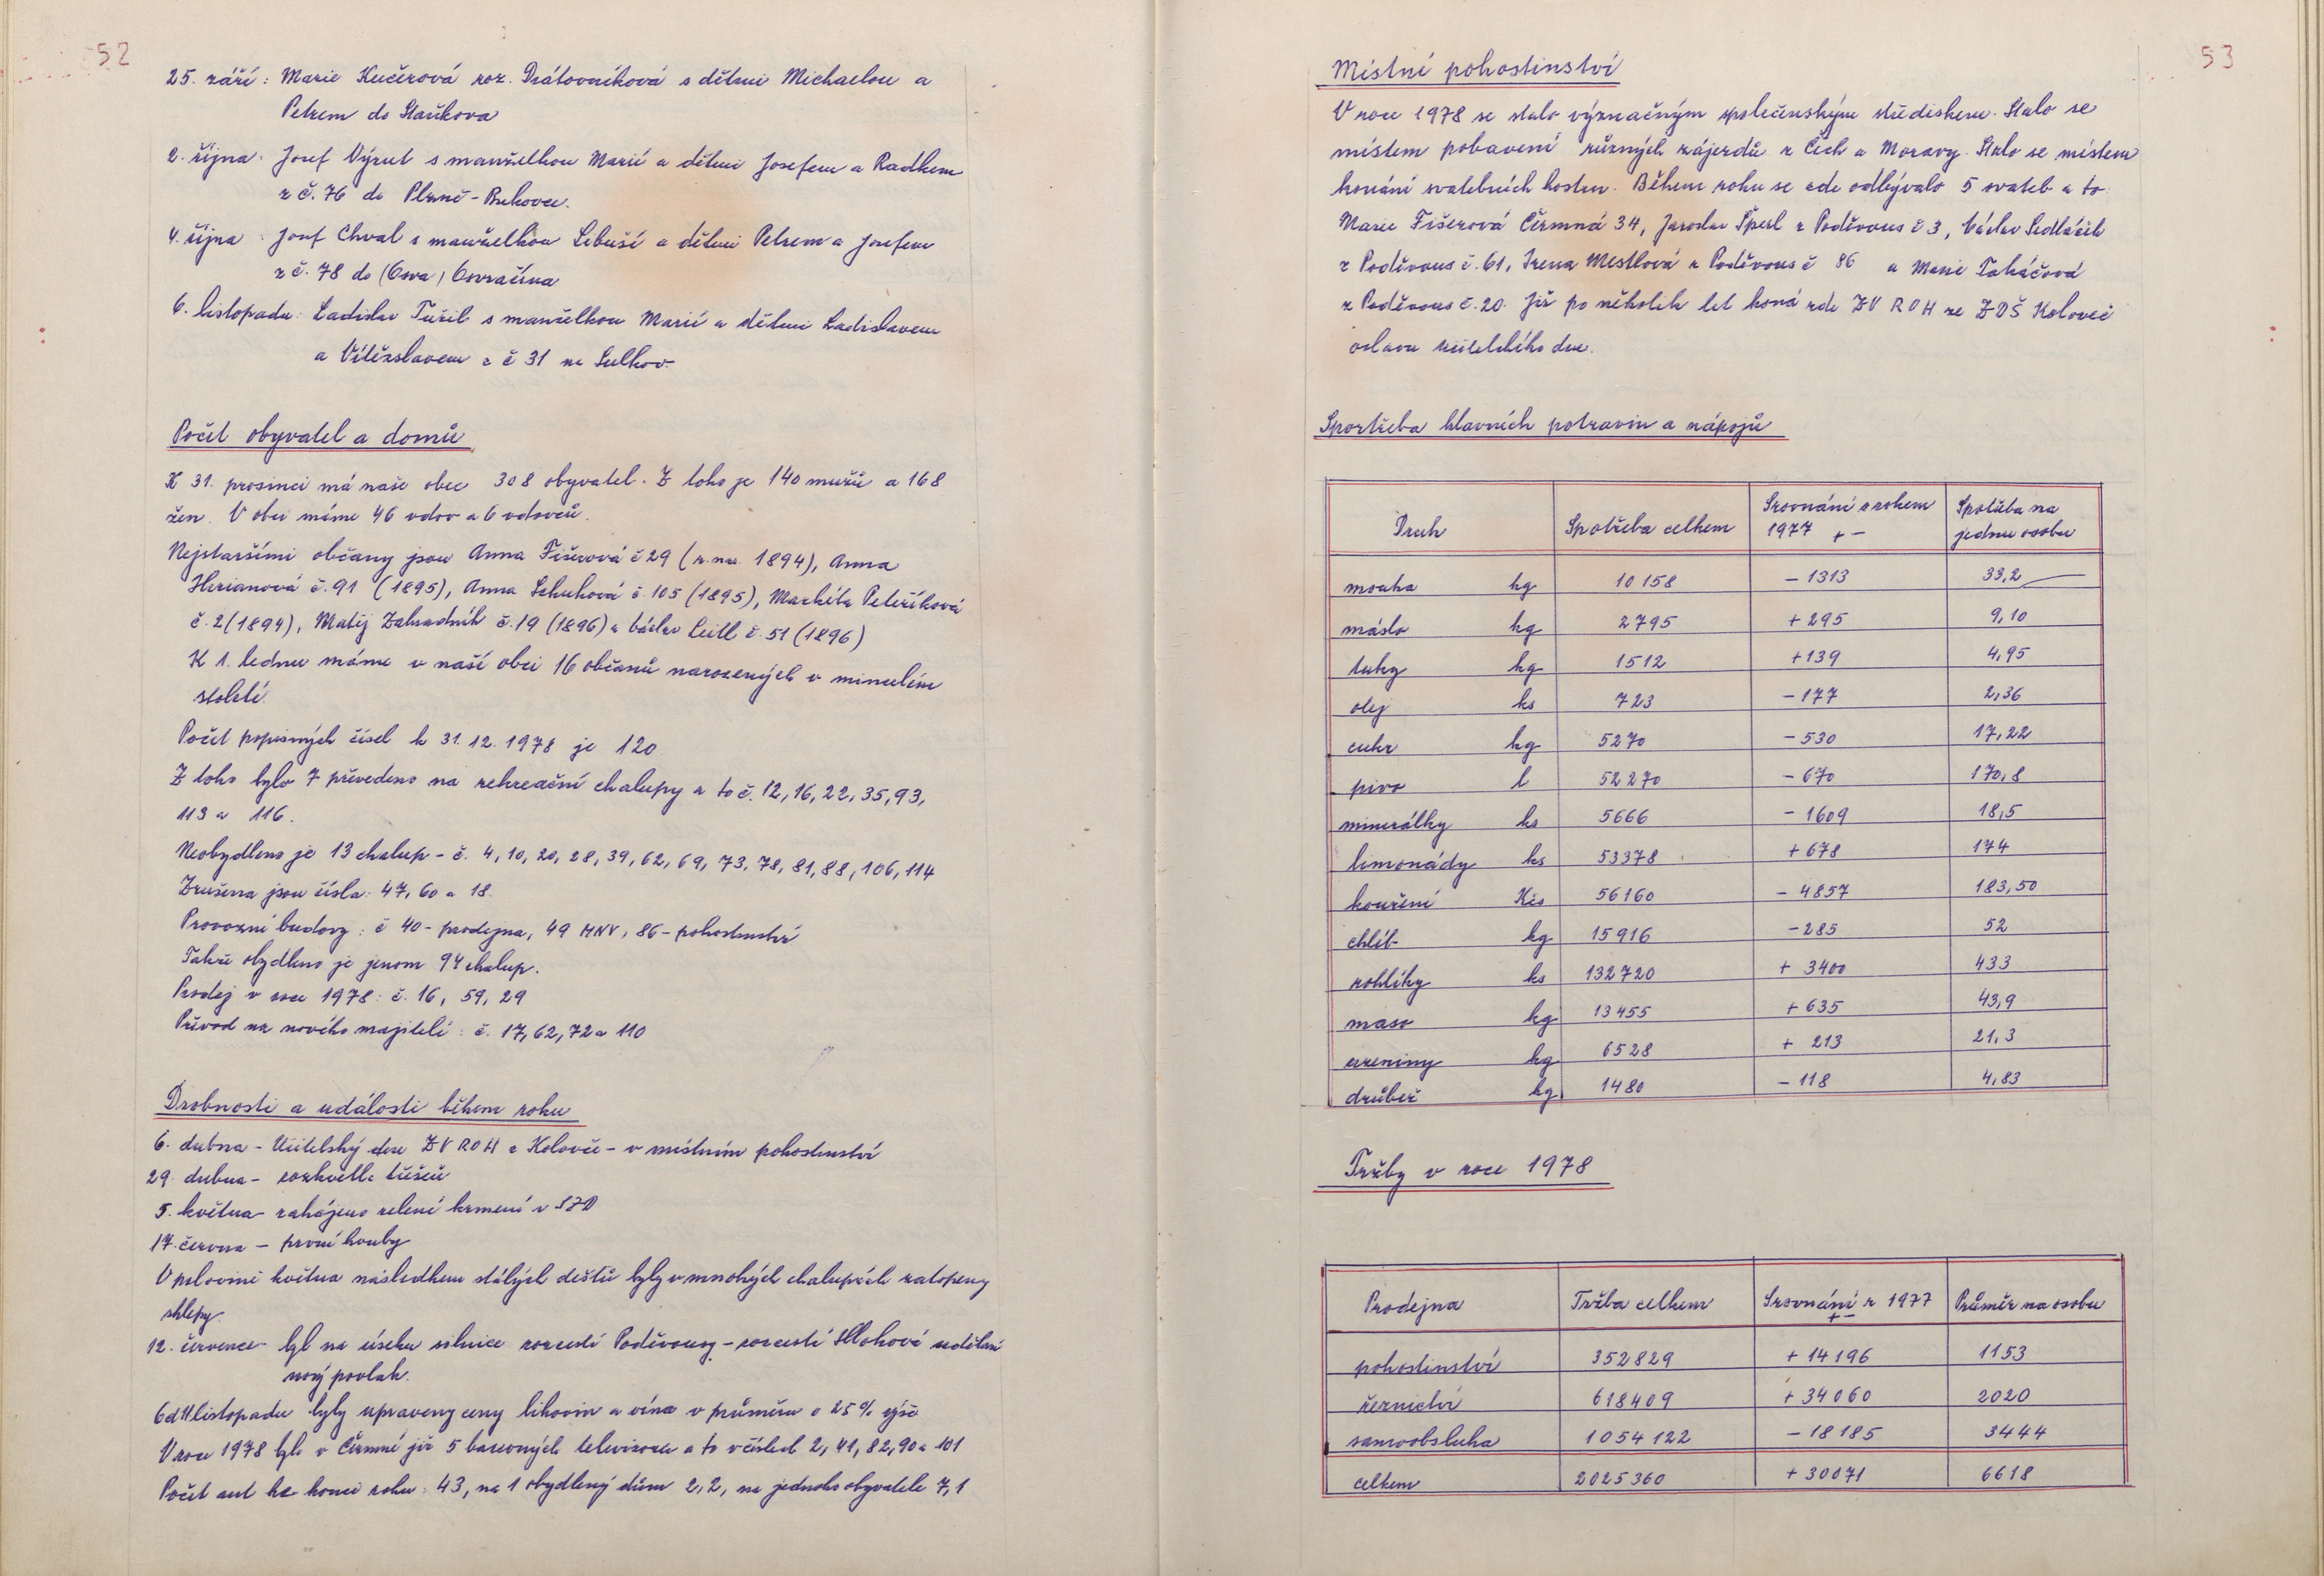 52
25. září: Marie Kučerová roz. Drátovníková s dětmi Michaelou a
Petrem do Staňkova
2. října: Josef Výrut s manželkou Marií a dětmi Josefem a Radkem
z č. 76 do Plzně - Bukovce.
4. října: Josef Chval s manželkou Libuší a dětmi Petrem a Josefem
z č. 78 do (Osva) Osvračína
6. listopadu: Ladislav Tužil s manželkou Marií a dětmi Ladislavem
a Vítězslavem z č 31 na Sulkov.
Počet obyvatel a domů
K 31. prosinci má naše obec 308 obyvatel. Z toho je 140 mužů a 168
žen. V obci máme 46 vdov a 6 vdovců.
Nejstaršími občany jsou Anna Fišerová č 29 (r. nar. 1894), Anna
Herianová č. 91 (1895), Anna Schuhová č. 105 (1895), Markéta Peteříková
č. 2 (1894), Matěj Zahradník č. 19 (1896) a Václav Leitl č. 51 (1896)
K 1. lednu máme v naší obci 16 občanů narozených v minulém
století.
Počet popisných čísel k 31. 12. 1978 je 120
Z toho bylo 7 převedeno na rekreační chalupy a to č. 12, 16, 22, 35, 93,
113 a 116.
Neobydleno je 13 chalup - č. 4, 10, 20, 28, 39, 62, 69, 73, 78, 81, 88, 106, 114
Zrušena jsou čísla: 47, 60 a 18.
Provozní budovy: č 40 - prodejna, 49 MNV, 86 - pohostinství
Takže obydleno je jenom 94 chalup.
Prodej v roce 1978: č. 16, 59, 29
Převod na nového majitele: č. 17, 62, 72 a 110
Drobnosti a události během roku
6. dubna - Učitelský den ZV ROH z Kolovče - v místním pohostinství
29. dubna - rozkvetla třešeň
5. května - zahájeno zelené krmení v JZD
17. června - první houby
V polovině května následkem stálých dešťů byly v mnohých chalupách zatopeny
sklepy.
12. července - byl na úseku silnice rozcestí Poděvousy - rozcestí Hlohová udělán
nový povlak.
Od 11 listopadu byly upraveny ceny lihovin a vína v průměru o 25 % výše
V roce 1978 bylo v Čermné již 5 barevných televizorů a to v číslech 2, 41, 82, 90 a 101
Počet aut ke konci roku: 43, na 1 obydlený dům 2,2, na jednoho obyvatele 7,1
53
Místní pohostinství
V roce 1978 se stalo význačným společenským střediskem. Stalo se
místem pobavení různých zájezdů z Čech a Moravy. Stalo se místem
konání svatebních hostin. Během roku se zde odbývalo 5 svateb a to:
Marie Fišerová Čermná 34, Jaroslav Šperl z Poděvous č 3, Václav Sedláček
z Poděvous č. 61, Irena Mestlová z Poděvous č 86 a Marie Taháčová
z Poděvous č. 20. Již po několik let koná zde ZV ROH ze ZDŠ Koloveč
oslavu Učitelského dne.
Sportřeba hlavních potravin a nápojů
Druh Spotřeba celkem Srovnání s rokem 1977 + - Spotřeba na jednu osobu
mouka kg 10158 - 1313 33,2
máslo kg 2795 + 295 9,10
tuky kg 1512 + 139 4,95
olej ks 723 - 177 2,36
cukr kg 5270 - 530 17,22
pivo l 52270 - 670 170,8
minerálky ks 5666 - 1609 18,5
limonády ks 53378 + 678 174
kouření Kčs 56160 - 4857 183,50
chléb kg 15916 - 285 52
rohlíky ks 132720 + 3400 433
maso kg 13455 + 635 43,9
uzeniny kg 6528 + 213 21,3
drůbež kg 1480 - 118 4,83
Tržby v roce 1978
Prodejna Tržba celkem Srovnání r 1977 + - Průměr na osobu
pohostinství 352829 + 14196 1153
řeznictví 618409 + 34060 2020
samoobsluha 1054122 - 18185 3444
celkem 2025360 + 30071 6618